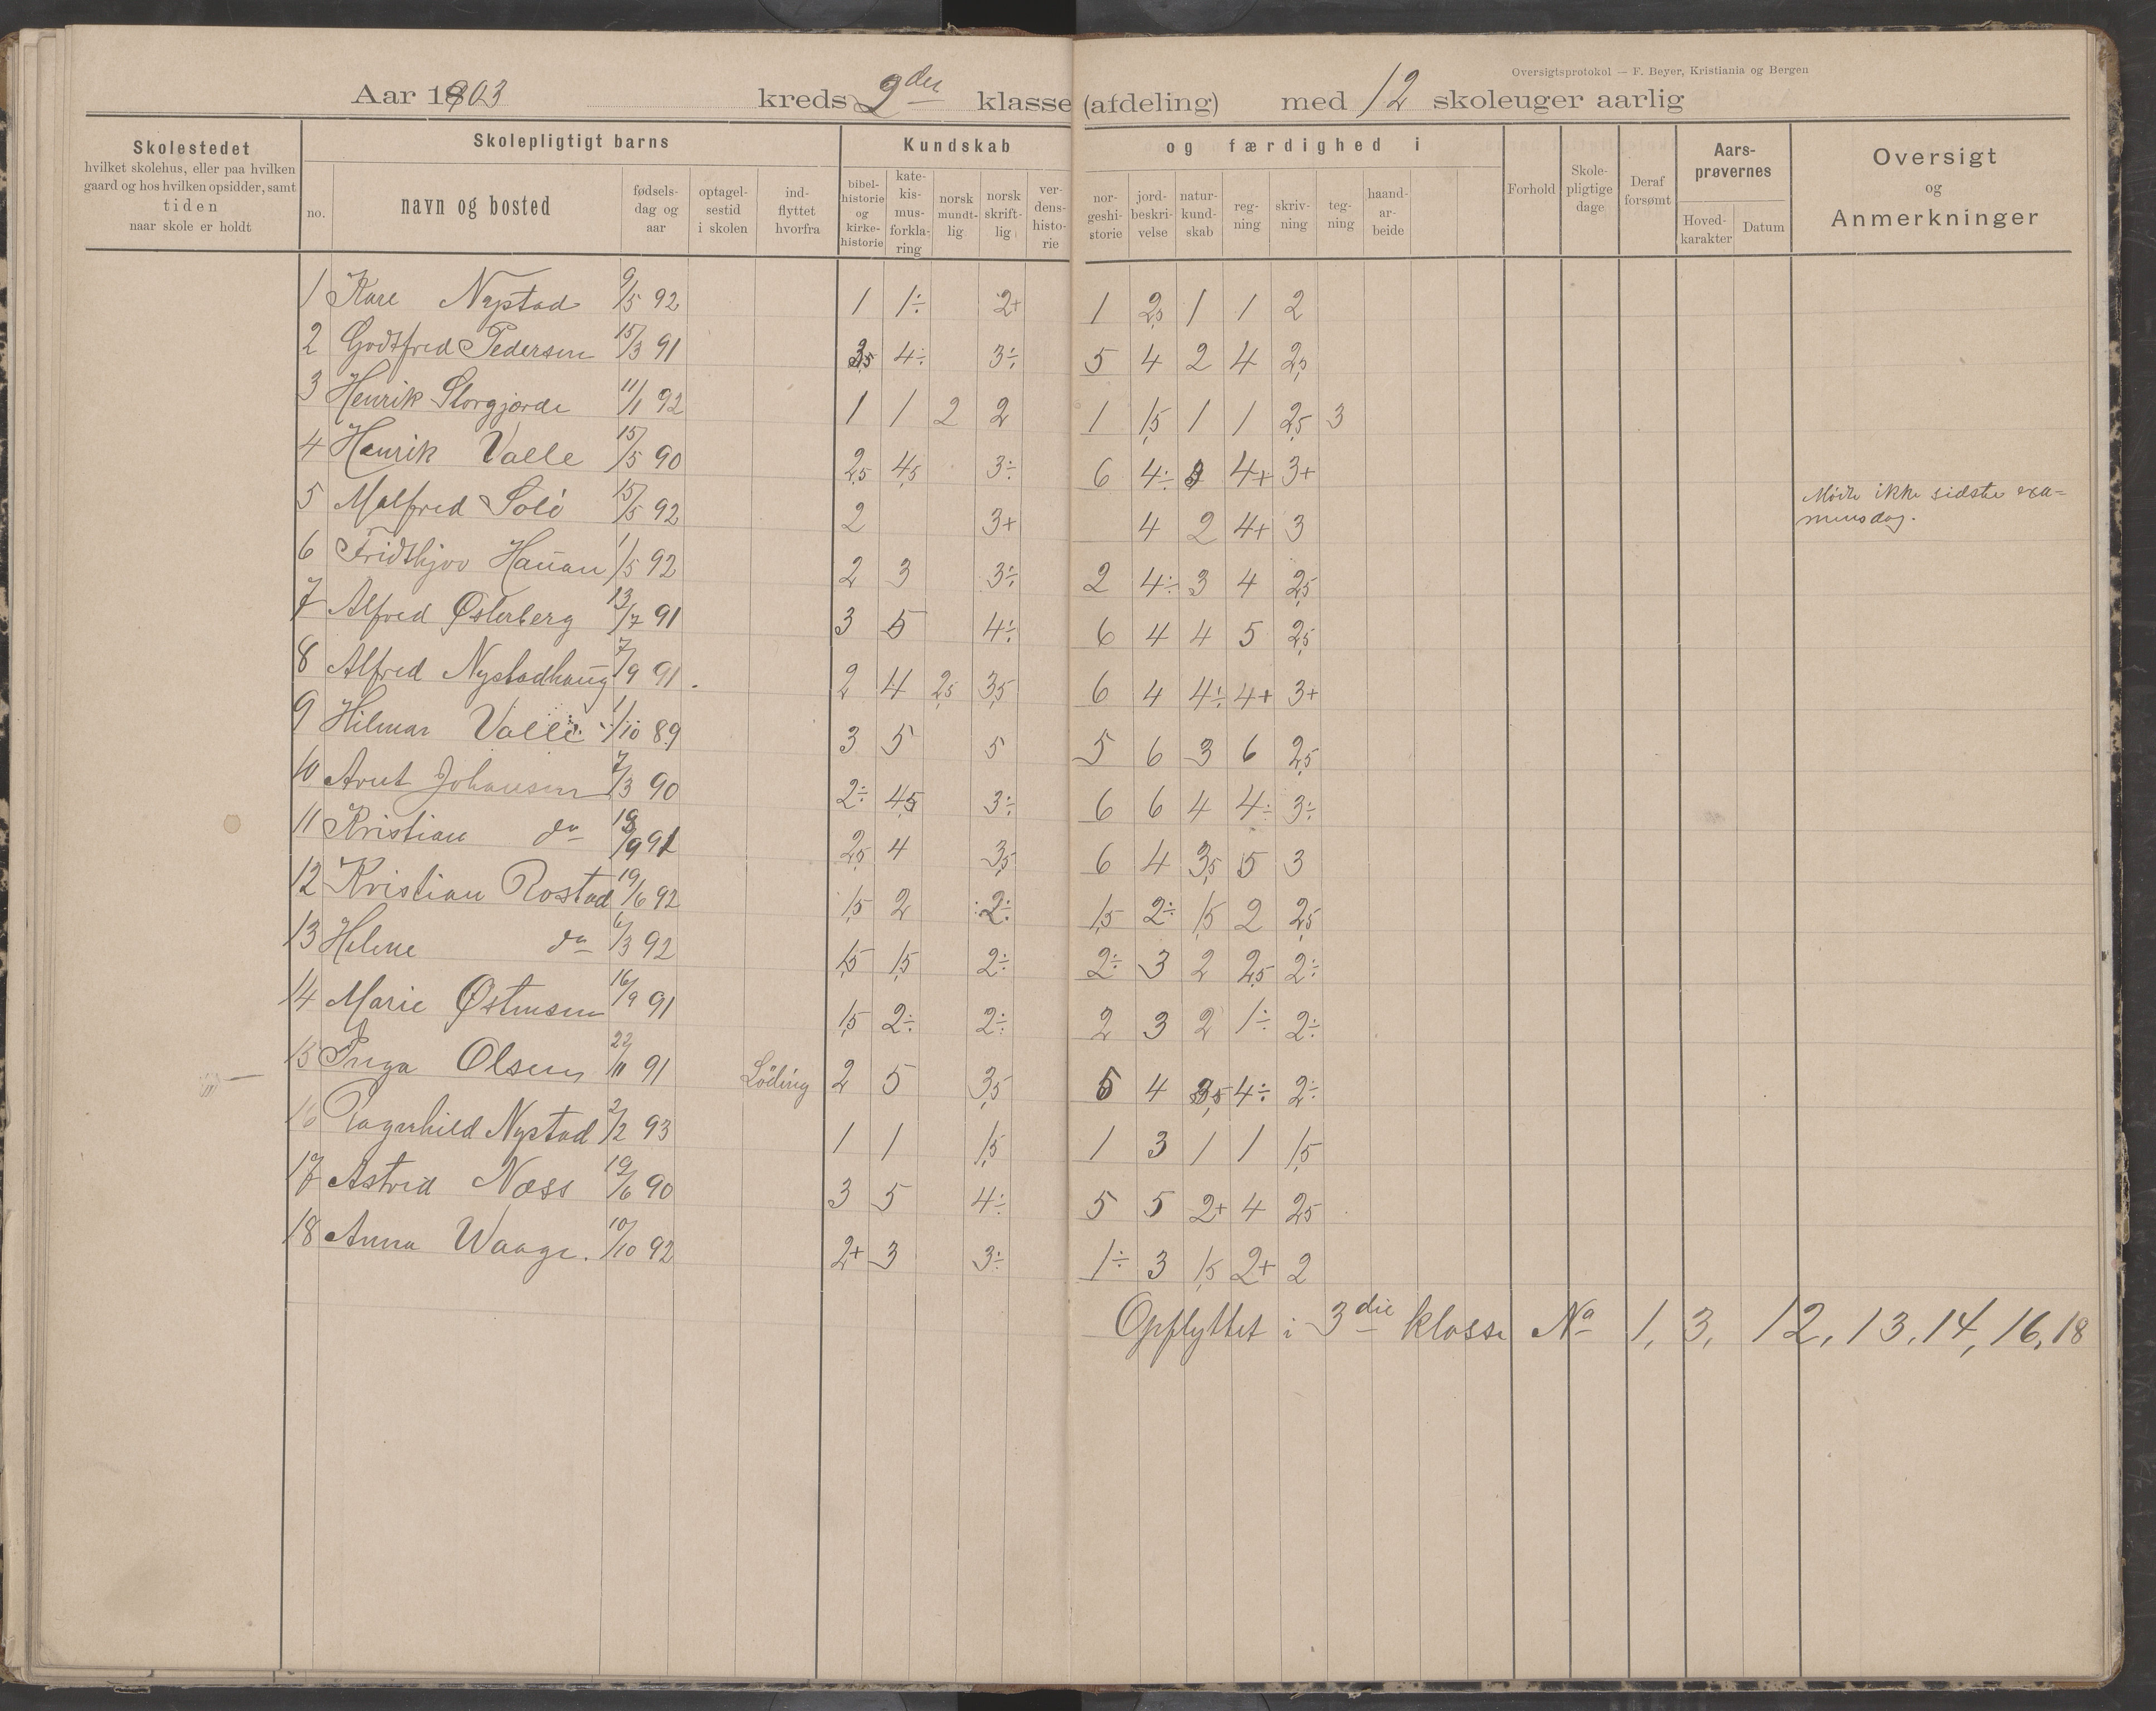 Oversigtsprotokol — F. Beyer, Kristiania og Bergen
Aar 1903 kreds 2den klasse (afdeling) med 12 skoleuger aarlig
Skolestedet
hvilket skolehus, eller paa hvilken
gaard og hos hvilken opsidder, samt
tiden
naar skole er holdt
Skolepligtigt barns
no.
navn og bosted
fødsels-
dag og
aar
optagel-
sestid
i skolen
ind-
flyttet
hvorfra
Kundskab og færdighed i
bibel-
historie
og
kirke-
historie
kate-
kis-
mus-
forkla-
ring
norsk
mundt-
lig
norsk
skrift-
lig
ver-
dens-
histo-
rie
nor-
geshi-
storie
jord-
beskri-
velse
natur-
kund-
skab
reg-
ning
skriv-
ning
teg-
ning
haand-
ar-
beide
Forhold
Skole-
pligtige
dage
Deraf
forsømt
Aars-
prøvernes
Hoved-
karakter
Datum
Oversigt
og
Anmerkninger
1 Kare Nystad 9/5 92 1 1÷ 2+ 1 2,5 1 1 2
2 Godtfred Pedersen 15/3 91 3,5 4÷ 3÷ 5 4 2 4 2,5
3 Henrik Storgjorde 11/1 92 1 1 2 2 1 1,5 1 1 2,5 3
4 Henrik Valle 15/5 90 2,5 4,5 3÷ 6 4÷ 4+ 3+
5 Malfred Solö 15/5 92 2 3+ 4 2 4+ 3 Mödte ikke sidste exa-
mensdag.
6 Fridthjov Hauan 1/5 92 2 3 3÷ 2 4÷ 3 4 2,5
7 Alfred Østerberg 13/7 91 3 5 4÷ 6 4 4 5 2,5
8 Alfred Nystadhaug 7/9 91 2 4 2,5 3,5 6 4 4÷ 4+ 3+
9 Hilmar Valle 1/10 89 3 5 5 5 6 3 6 2,5
10 Arnt Johansen 7/3 90 2÷ 4,5 3÷ 6 6 4 4÷ 3÷
11 Kristian do 18/9 91 2,5 4 3,5 6 4 3,5 5 3
12 Kristian Rostad 19/6 92 1,5 2 2÷ 1,5 2÷ 1,5 2 2,5
13 Helene do 6/3 92 1,5 1,5 2÷ 2÷ 3 2 2,5 2÷
14 Marie Østensen 16/9 91 1,5 2÷ 2÷ 2 3 2 1÷ 2÷
15 Inga Olsen 22/11 91 Löding 2 5 3,5 5 4 3,5 4÷ 2÷
16 Ragnhild Nystad 2/2 93 1 1 1,5 1 3 1 1 1,5
17 Astrid Næss 19/6 90 3 5 4÷ 5 5 2+ 4 2,5
18 Anna Waage. 10/10 92 2+ 3 3÷ 1÷ 3 1,5 2+ 2
Opflyttet i 3die klasse No 1, 3, 12, 13, 14, 16, 18